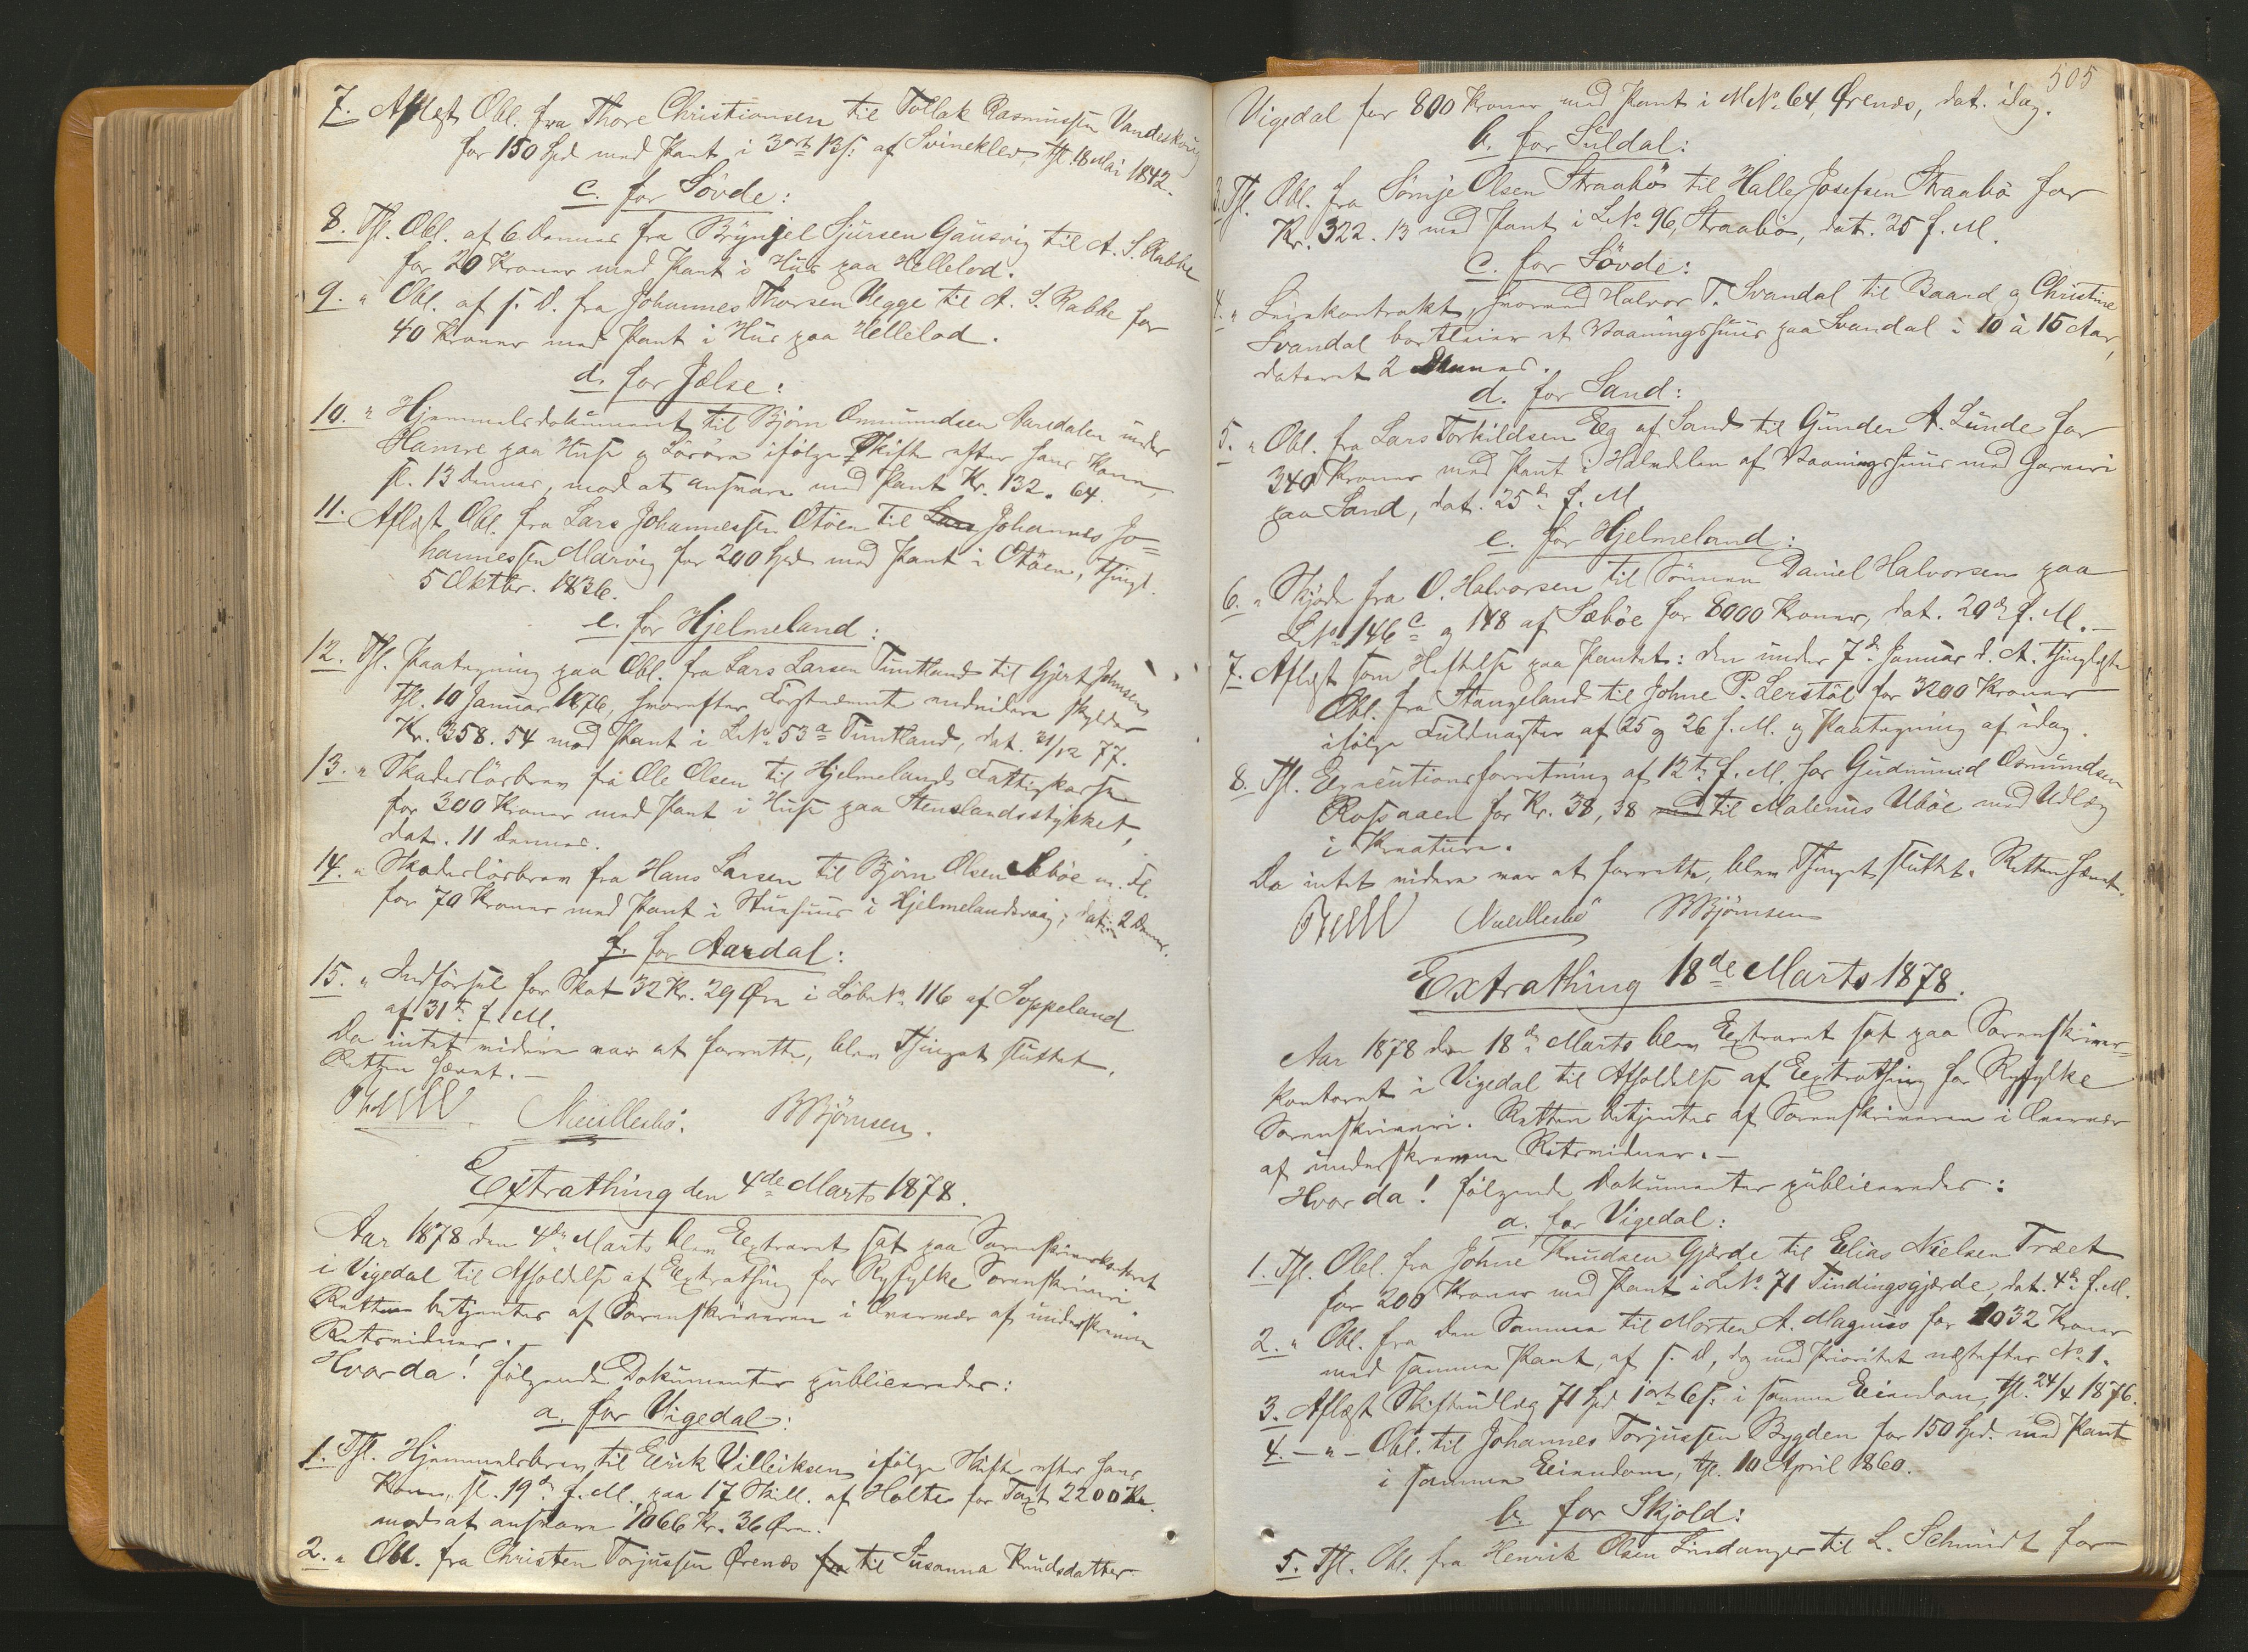 7. Aflæst Obl. fra Thore Christiansen til Tollak Rasmussen Vandeskoug
for 150 Spd med Pant i 3 ort 13 s: af Svineklev, tgl. 18 Mai 1842.
c. for Søvde:
8. Tgl. Obl. af 6 Dennes fra Brynjel Sjursen Gausvig til A. S. Rabbe
for 20 Kroner med Pant i Hus paa Hellelod.
9. " Obl. af s. D. fra Johannes Thorsen Vegge til A. S. Rabbe for
40 Kroner med Pant i Hus paa Hellelod.
d. for Jelse:
10. " Hjemmelsdokument til Bjørn Omundsen Vardalen under
Hamre paa Huse og Løsøre ifølge Skifte efter hans Kone,
sl. 13 Dennes, mod at ansvare med Pant Kr. 132. 64.
11. Aflæst Obl. fra Lars Johannessen Otøen til Lars Johannes Jo=
hannessen Marvig for 200 Spd med Pant i Otøen, thingl.
5 Oktbr. 1836.
e. for Hjelmeland:
12. Tgl. Paategning paa Obl. fra Lars Larsen Tuntland til Gjert Johnsen
tgl. 10 Januar 1876, hvorefter Førstnævnte endvidere skylder
Kr. 358. 54 mod Pant i LNo. 53a Tuntland, dat. 31/12 77.
13. " Skadesløsbrev fra Ole Olsen til Hjelmelands Fattigkasse
for 300 Kroner med Pant i Huse paa Stenslandsstykket,
dat. 11 Dennes.
14. " Skadesløsbrev fra Hans Larsen til Bjørn Olsen Sebøe m. Fl.
for 70 Kroner med Pant i Stuehuus i Hjelmelandsvaag, dat. 2 Dennes.
f. for Aardal:
15. " Indførsel for Skat 32 Kr. 29 Øre i Løbe No. 116 af Soppeland
af 31te f. M.
Da intet videre var at forrette, blev Thinget sluttet.
Retten hævet.—
Nuillesbø. BBjørnsen.
Extrathing den 4de Marts 1878.
Aar 1878 den 4de Marts blev Extraret sat paa Sorenskriverkontoret
i Vigedal til Afholdelse af Extrathing for Ryfylke Sorenskriveri.
Retten betjentes af Sorenskriveren i Overvær af underskrevne
Retsvidner.
Hvor da! følgende Dokumenter publiceredes:
a. for Vigedal:
1. Tgl. Hjemmelsbrev til Eirik Villeiksen ifølge Skifte efter hans
Kone, sl. 19de f. M. paa 17 Skill. af Holte for Taxt 2200 Kr.
mod at ansvare 1066 Kr. 36 Øre.
2. " Obl. fra Christen Torjussen Ørenæs fra til Susanna Knudsdatter
505
Vigedal for 800 Kroner med Pant i MNo. 64, Ørenæs, dat. idag.
b. for Suldal:
3. Tgl. Obl. fra Sømje Olsen Straabø til Halle Josefsen Straabø for
Kr. 322. 13 med Pant i LNo. 96, Straabø, dat. 25 f. M.
c. for Søvde:
4. " Leiekontrakt, hvorved Halvor T. Svandal til Baard og Christine
Svandal bortleier et Vaaningshuus paa Svandal i 10 à 15 Aar,
dateret 2 Dennes.
d. for Sand:
5. " Obl. fra Lars Torkildsen Eeg af Sand til Gunder A. Lunde for
340 Kroner med Pant i Halvdelen af Vaaningshuus med Garveri
paa Sand, dat. 25de f. M.
e. for Hjelmeland:
6. " Skjøde fra O. Halvorsen til Sønnen Daniel Halvorsen paa
LNo. 146c og 148 af Sæbøe for 8000 Kroner, dat. 20de f. M.—
7. Aflæst som Heftelse paa Pantet: den under 7de Januar d. A. thinglæste
Obl. fra Stangeland til Johne P. Lerstøl for 3200 Kroner
ifølge Fuldmagter af 25 og 26 f. M. og Paategning af idag.
8. Tgl. Executionsforretning af 12te f. M. for Gudmund Osmundsen
Rossaaen for Kr. 38, 38 med til Malenus Ubøe med Udlæg
i Kreature.
Da intet videre var at forrette, blev Thinget sluttet. Retten hævet.
Nuillesbø BBjørnsen
Extrathing 18de Marts 1878.
Aar 1878 den 18de Marts blev Extraret sat paa Sorenskriver=
kontoret i Vigedal til Afholdelse af Extrathing for Ryfylke
Sorenskriveri. Retten betjentes af Sorenskriveren i Overvær
af underskrevne Retsvidner.—
Hvor da! følgende Dokumenter publiceredes:
a. for Vigedal:
1. Tgl. Obl. fra Johne Knudsen Gjærde til Elias Nielsen Træet
for 200 Kroner med Pant i LNo. 71 Tindingsgjærde, dat. 4de f. M.
2. " Obl. fra den Samme til Morten A. Magnus for 1032 Kroner
med samme Pant, af s. D, dog med Prioritet næstefter No. 1.
3. Aflæst Skifteudlæg 71 Spd 1 ort 6 s: i samme Eiendom, tgl. 24/4 1876.
4. — " — Obl. til Johannes Torjussen Bygden for 150 Spd. med Pant
i samme Eiendom, tgl. 10 April 1860.
b. for Skjold:
5. Tgl. Obl. fra Henrik Olsen Lindanger til L. Schmidt for